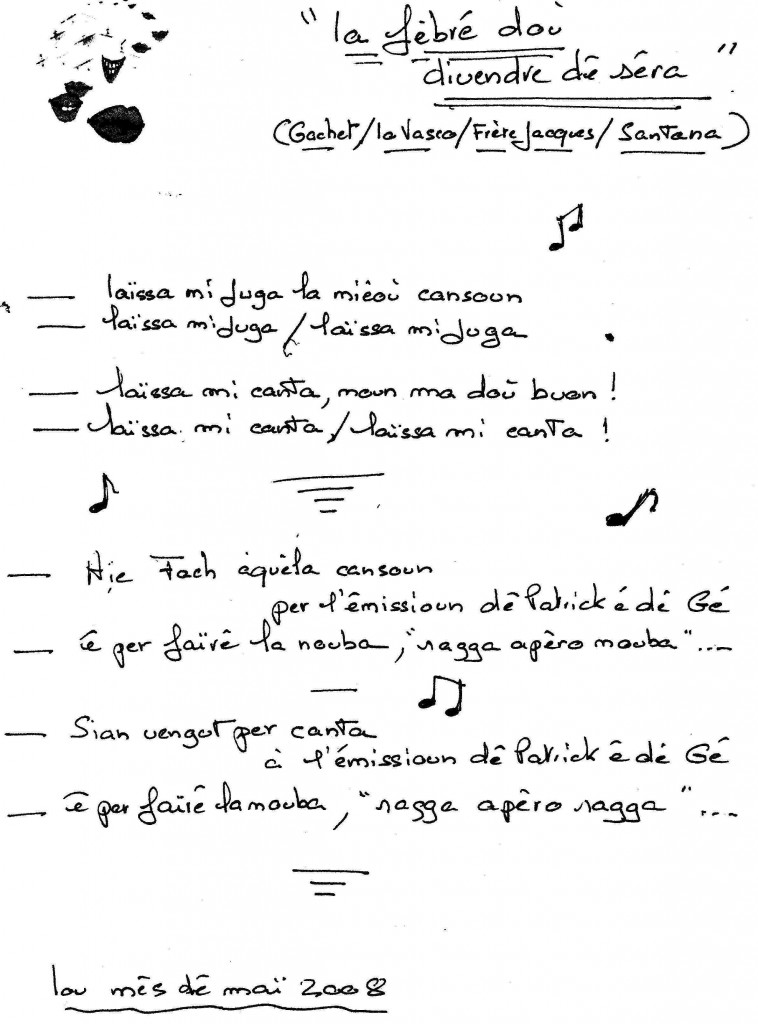 "la fèbré doù
divendre dê sêra"
(Gachet/la Vasco/Frère Jacques/Santana)
— laïssa mi juga la miêoù cansoun
— laïssa mi juga / laïssa mi juga
— laïssa mi canta, noun ma doù buon !
— laïssa mi canta / laïssa mi canta !
— Aìe Fach aquèla cansoun
per l'êmissioun dê Patrick é dé Gé
— ê per faïrê la nouba, "ragga apèro nouba"...
— Sian vengut per canta
à l'émissioun dê Patrick ê dé Gê
— ê per faïrê la nouba, "ragga apêro ragga"...
lou mês dê maï 2008